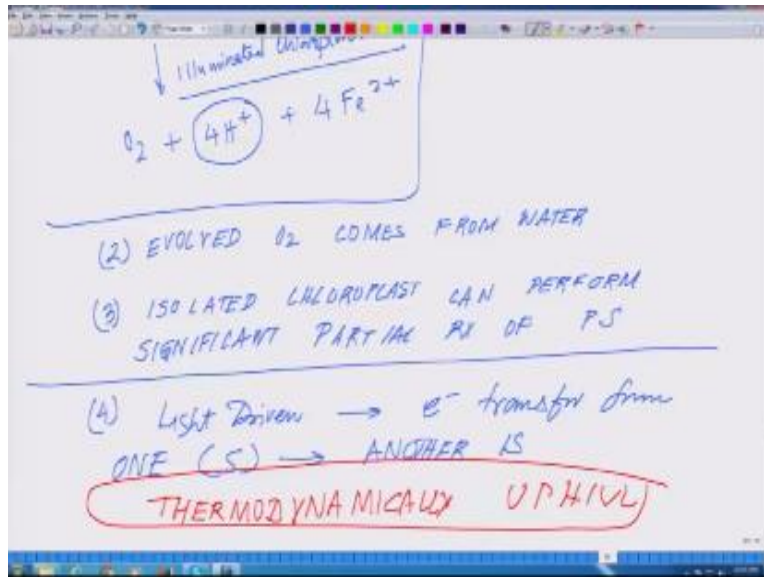 Illuminated
O2 + 4H+ + 4 Fe2+
(2) EVOLVED O2 COMES FROM WATER
(3) ISOLATED CHLOROPLAST CAN PERFORM
SIGNIFICANT PARTIAL RX OF PS
(4) Light Driven → e- transfer from
ONE (S) → ANOTHER IS
THERMODYNAMICALLY UPHILL